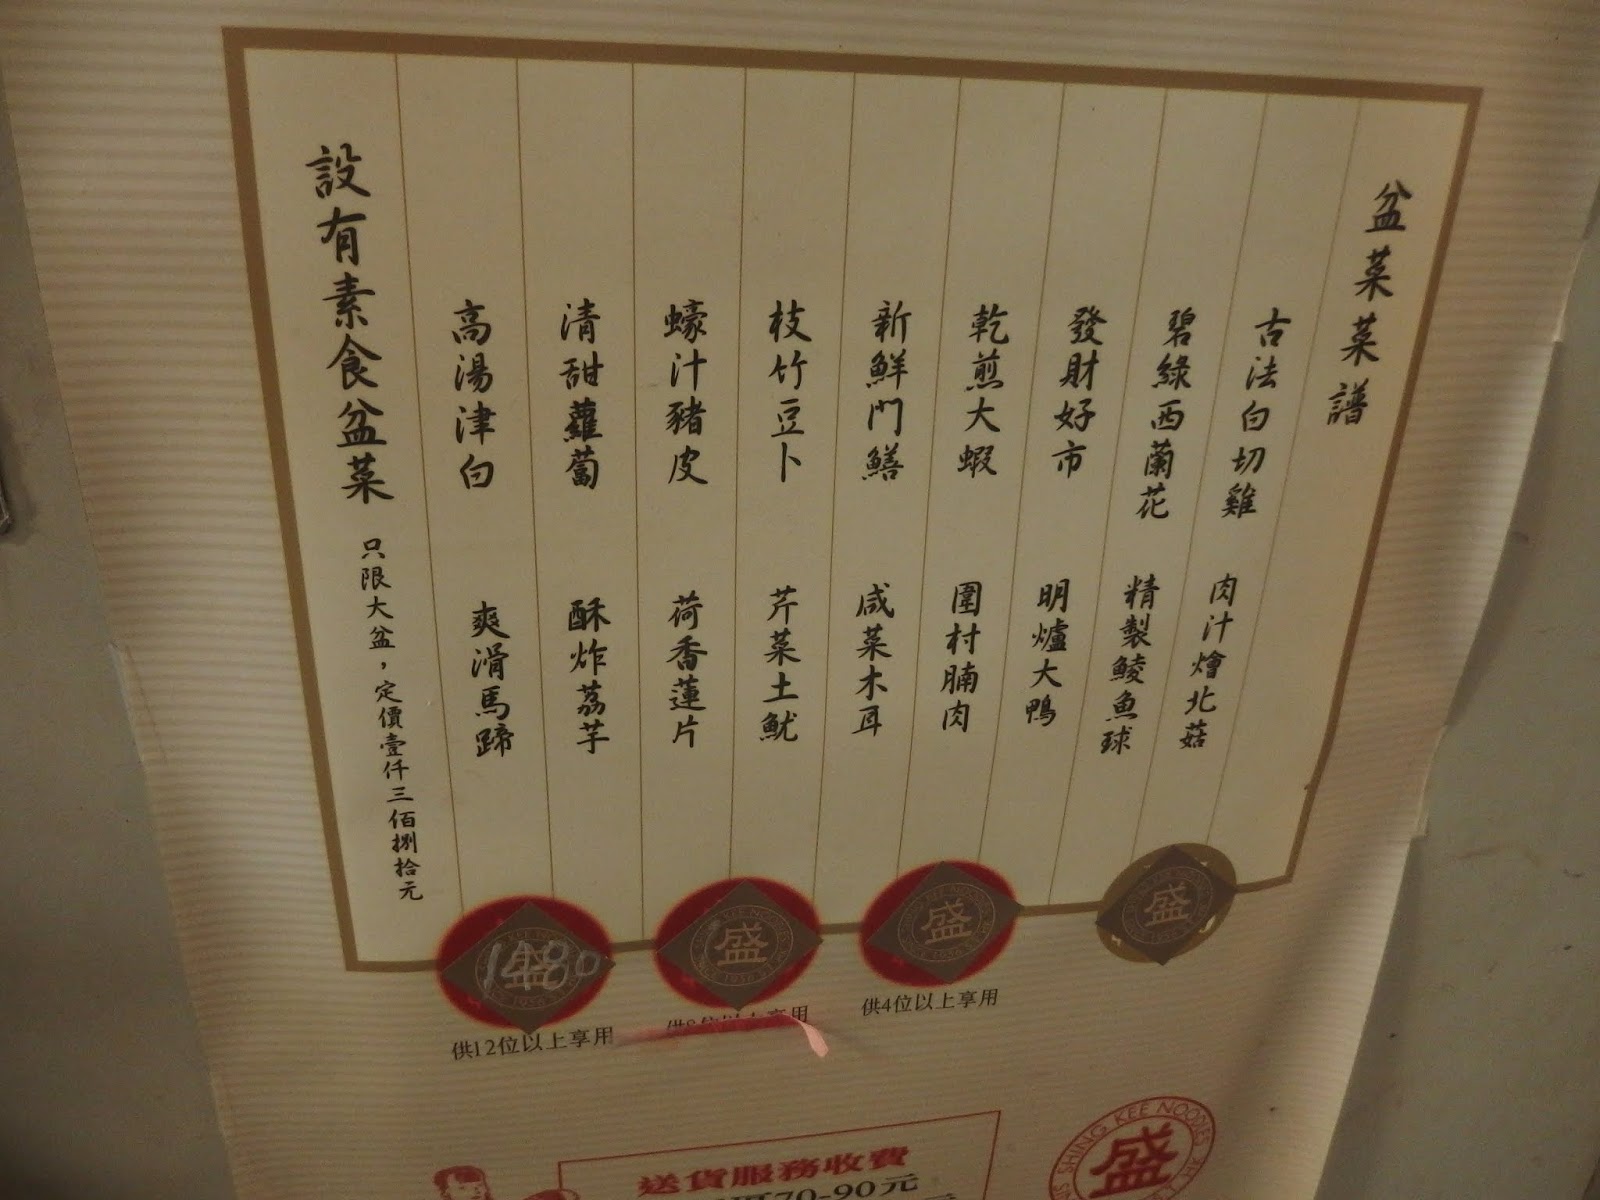 盆菜菜譜
古法白切雞 肉汁燴北菇
碧綠西蘭花 精製鯪魚球
發財好市 明爐大鴨
乾煎大蝦 圍村腩肉
新鮮門鱔 咸菜木耳
枝竹豆卜 芹菜土魷
蠔汁豬皮 荷香蓮片
清甜蘿蔔 酥炸荔芋
高湯津白 爽滑馬蹄
設有素食盆菜 只限大盆，定價壹仟三佰捌拾元
1480
盛
盛
盛
供12位以上享用
供8位以上享用
供4位以上享用
送貨服務收費
70-90元
SHING KEE NOODLES
盛